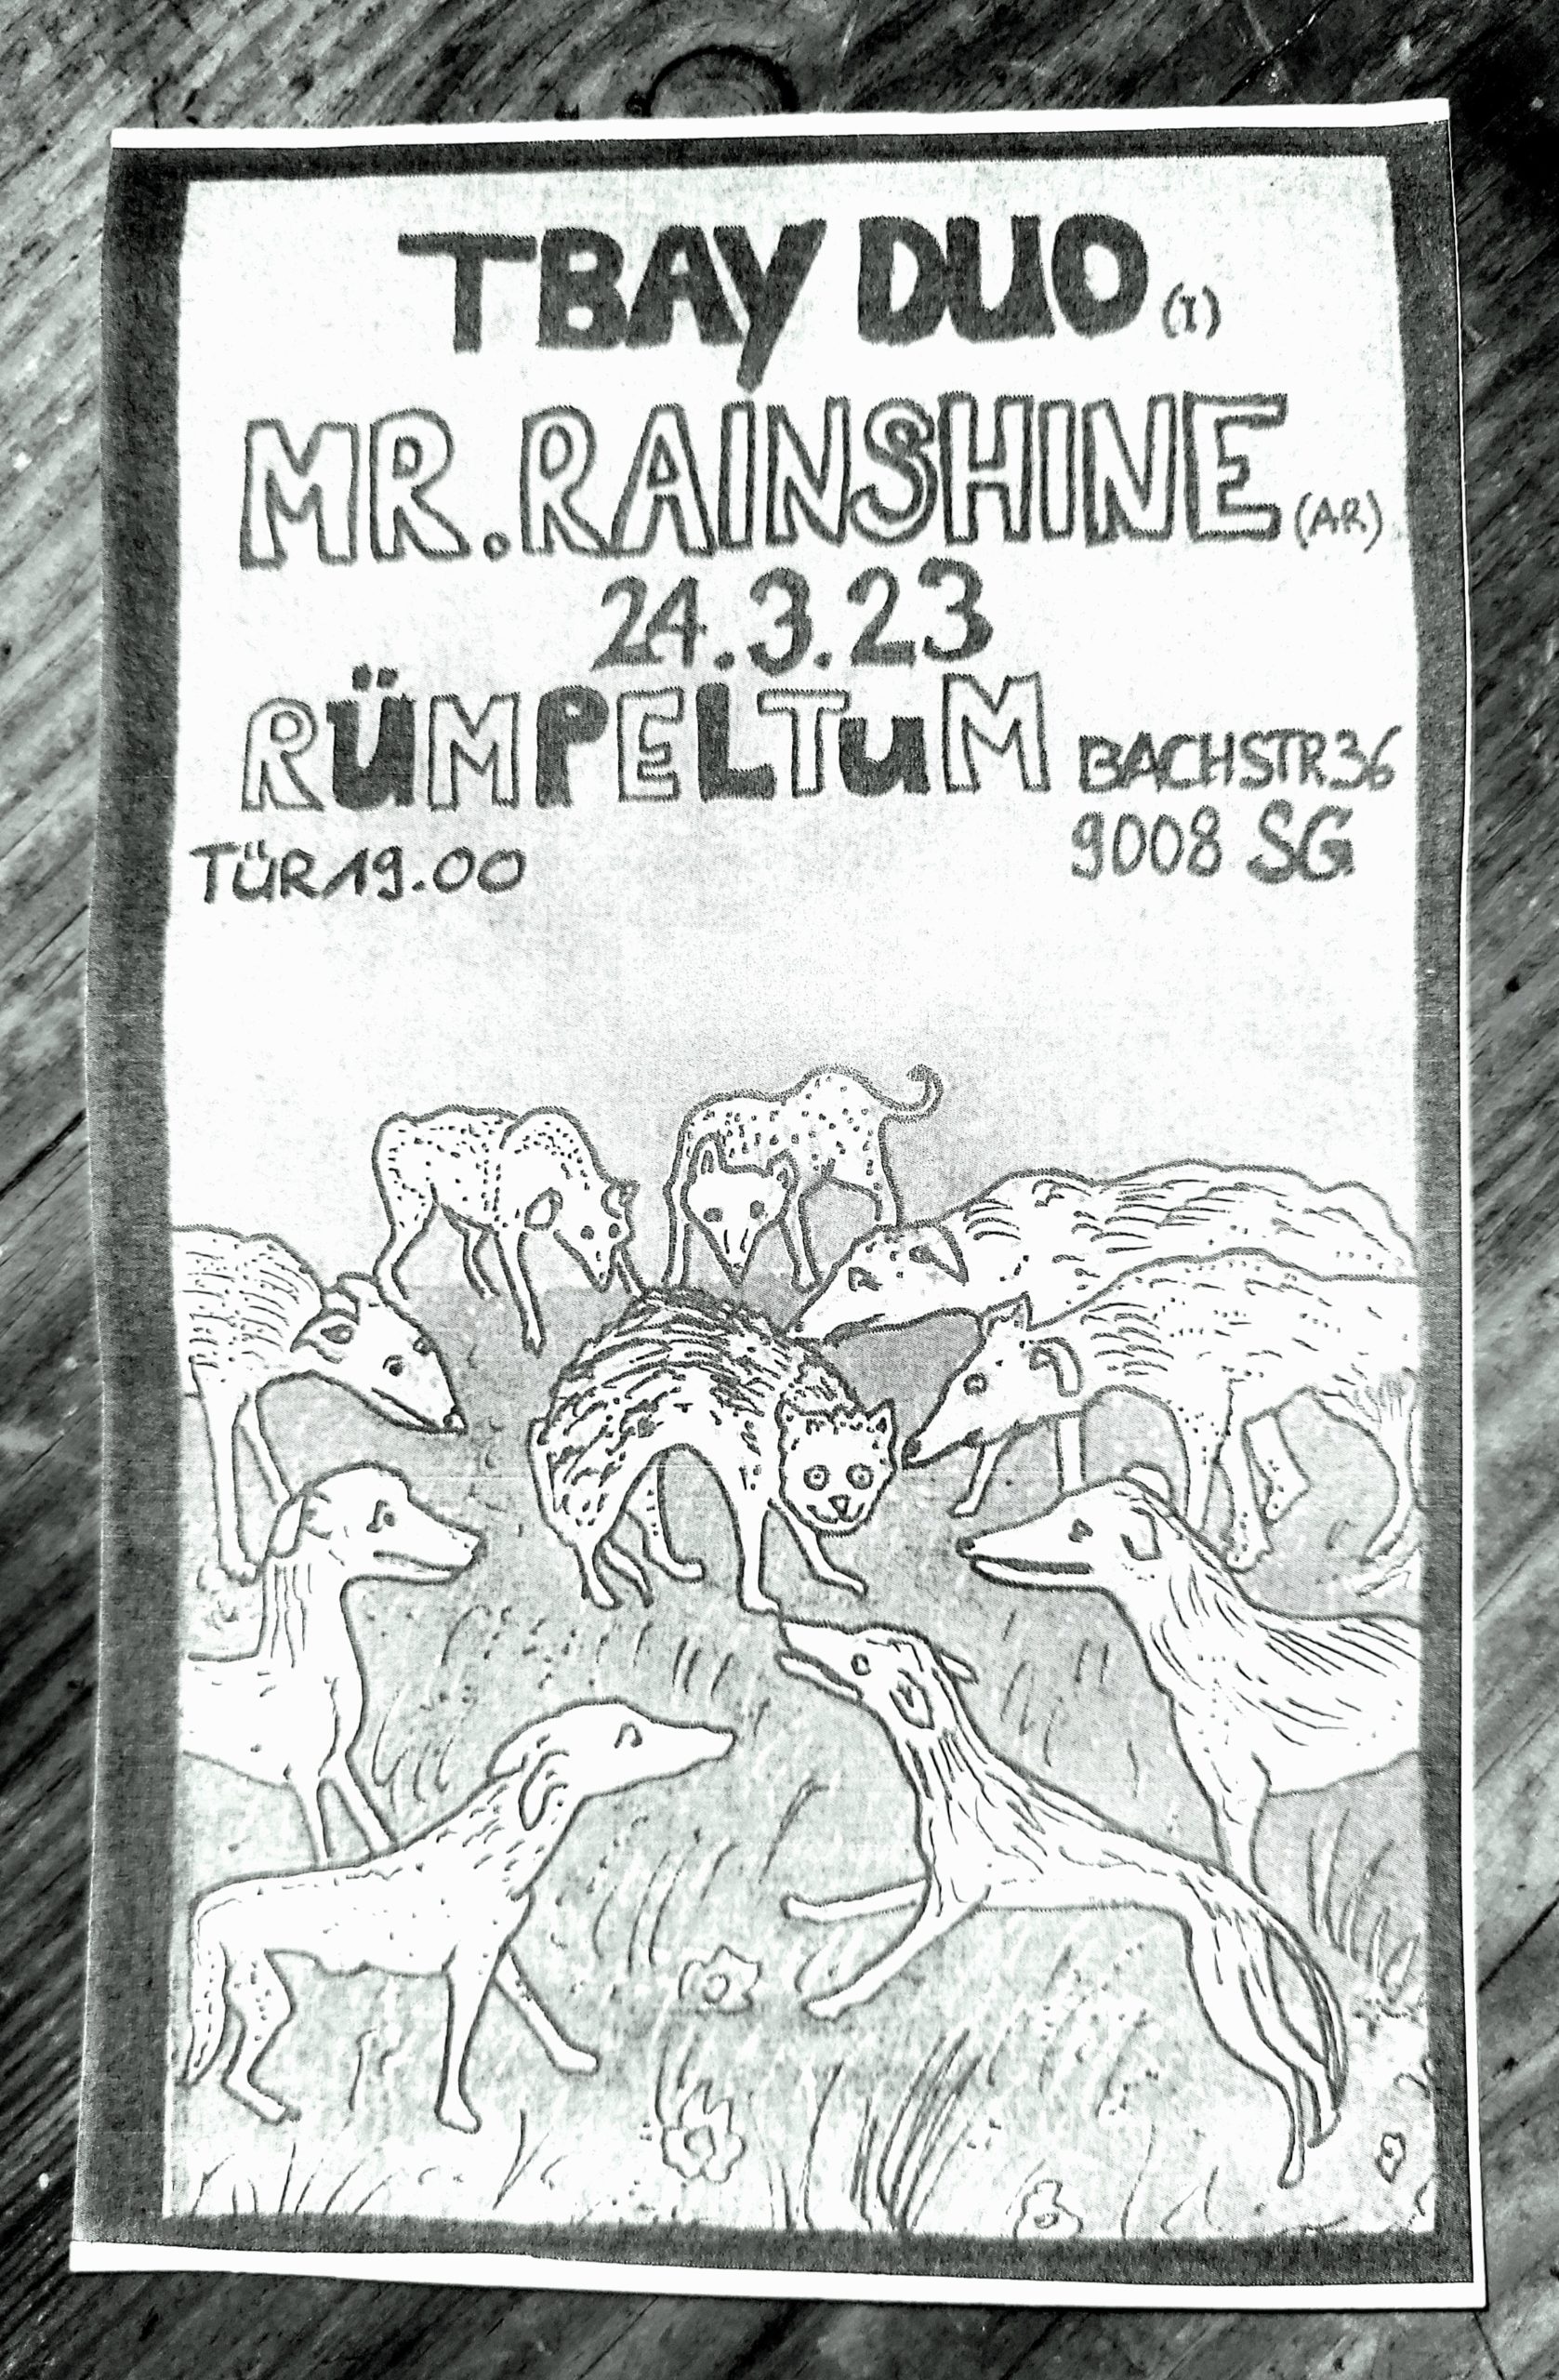 TBAY DUO (I)
MR. RAINSHINE (AR)
24.3.23
RÜMPELTUM BACHSTR 36
9008 SG
TÜR 19.00